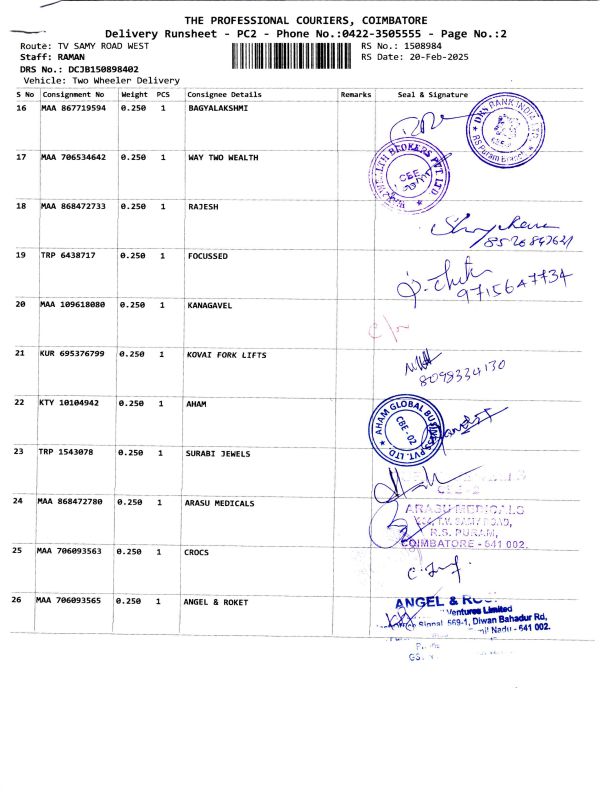 THE PROFESSIONAL COURIERS, COIMBATORE
Delivery Runsheet - PC2 - Phone No.:0422-3505555 - Page No.:2
Route: TV SAMY ROAD WEST
RS No.: 1508984
Staff: RAMAN
RS Date: 20-Feb-2025
DRS No.: DCJB150898402
Vehicle: Two Wheeler Delivery
S No Consignment No Weight PCS Consignee Details Remarks Seal & Signature
16 MAA 867719594 0.250 1 BAGYALAKSHMI
DBS BANK INDIA LTD.
RS Puram Branch
17 MAA 706534642 0.250 1 WAY TWO WEALTH
WEALTH BROKERS PVT. LTD.
CBE
18 MAA 868472733 0.250 1 RAJESH
19 TRP 6438717 0.250 1 FOCUSSED
9715647734
20 MAA 109618080 0.250 1 KANAGAVEL
21 KUR 695376799 0.250 1 KOVAI FORK LIFTS
8098334130
22 KTY 10104942 0.250 1 AHAM
AHAM GLOBAL PVT. LTD.
CBE - 02
23 TRP 1543078 0.250 1 SURABI JEWELS
24 MAA 868472780 0.250 1 ARASU MEDICALS
ARASU MEDICALS
T.V. SAMY ROAD,
R.S. PURAM,
COIMBATORE - 641 002.
25 MAA 706093563 0.250 1 CROCS
26 MAA 706093565 0.250 1 ANGEL & ROKET
ANGEL &
Ventures Limited
Signal, 569-1, Diwan Bahadur Rd,
Nadu - 641 002.